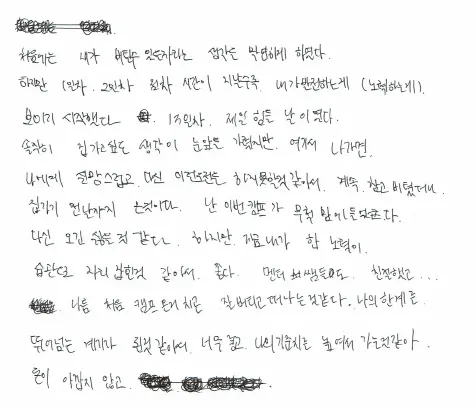 처음에는 내가 버틸수 있는지라는 생각을 막연하게 하였다.
하지만 1일차, 2일차 일차 시간이 지날수록 내가 발전하는게 (노력하는게).
보이기 시작했다 13일차. 제일 힘든 날이였다.
솔직히 집가고싶은 생각이 눈앞을 가렸지만, 여기서 나가면,
나에게 실망스럽고, 다신 이런도전은 하지못할것 같아서, 계속 참고 버텼더니
집가기 전날까지 온것이다. 난 이번 캠프가 무척 힘이들었다.
다신 오긴 싫을 것 같다. 하지만, 지금 내가 한 노력이,
습관으로 자리 잡힌것 같아서 좋다. 멘토 쌤들도 친절했고...
나름 처음 캠프 온거 치곤 잘 버티고 떠나는것같다. 나의 한계를
뛰어넘는 계기가 된것 같아서 너무 좋고, 나의 기준치를 높여서 가는것같아
돈이 아깝지 않고.